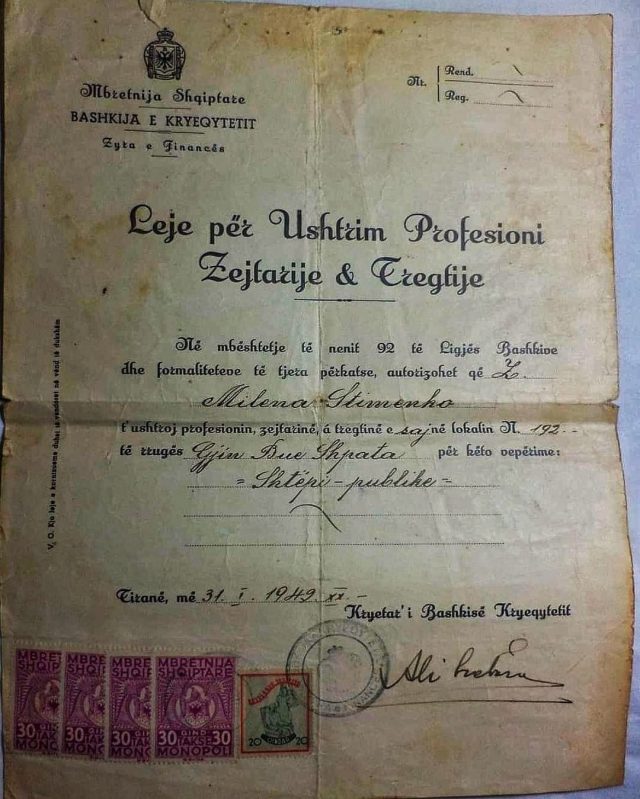 Mbretnija Shqiptare
BASHKIJA E KRYEQYTETIT
Zyra e Financës
Nr.
Rend.
Reg.
Leje për Ushtrim Profesioni
Zejtarije & Tregtije
Në mbështetje të nenit 92 të Ligjës Bashkive
dhe formaliteteve të tjera përkatse, autorizohet që Z.
Milena Stimenko
t'ushtroj profesionin, zejtarinë, a tregtinë e saj në lokalin N. 192.-
të rrugës Gjin Bue Shpata për këto vepërime:
= Shtëpi - publike =
Tiranë, më 31. I. 1942. XX.-
Kryetar' i Bashkisë Kryeqytetit
Ali
V. O. Kjo leje e kornizueme duhet të vendoset në vend të dukshëm
MBRE
SHQI
30
MBR
SHQIP
30
MBRE
SHQIP
30
MBRETNIJA
SHQIPTARE
30 QIND 30
TAKSE
MONOPOLI
20 20